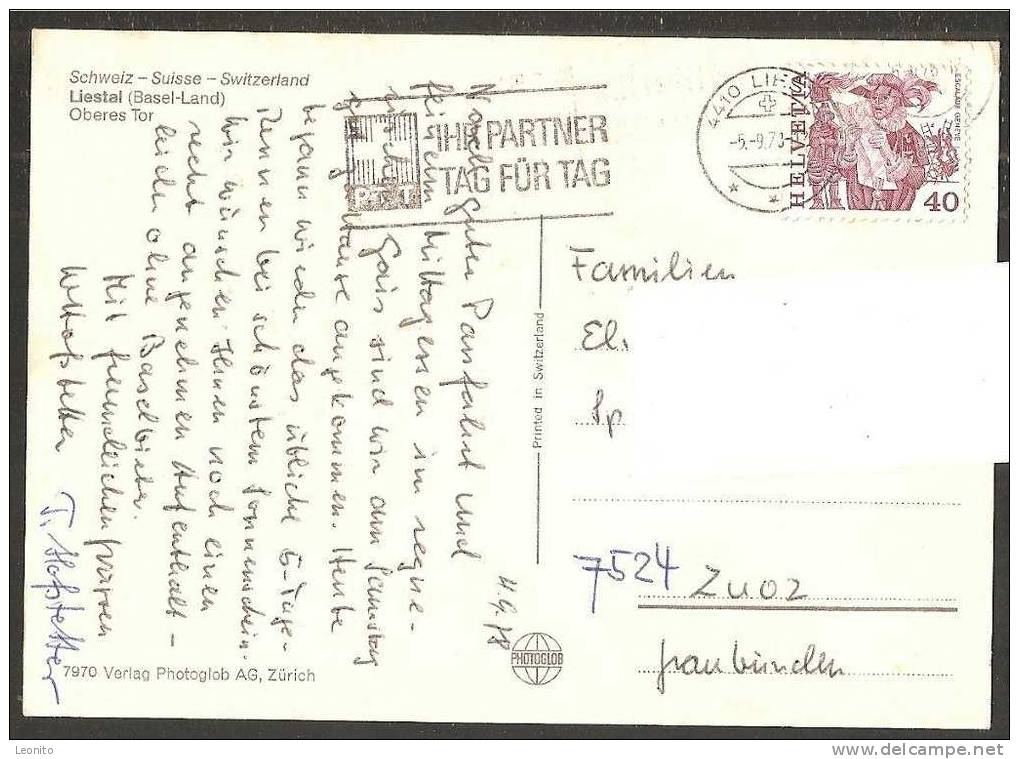 Schweiz – Suisse – Switzerland
Liestal (Basel-Land)
Oberes Tor
IHR PARTNER
TAG FÜR TAG
PTT
4410 LIESTAL
-5.-9.78-
HELVETIA
ESCALADE GENÈVE
40
4.9.78
Nach guter Passfahrt und
feinem Mittagessen im regne-
rischen Gais sind wir am Samstag
gut zu Hause angekommen. Heute
begann wieder das übliche 5-Tage-
Rennen bei schönstem Sonnenschein.
Wir wünschen Ihnen noch einen
recht angenehmen Aufenthalt –
leider ohne Baselbieter.
Mit freundlichen Grüssen
Hofstetter
T. Hofstetter
Familien
El.
Sp
7524 Zuoz
Graubünden
Printed in Switzerland
PHOTOGLOB
7970 Verlag Photoglob AG, Zürich
Leonito
www.delcampe.net